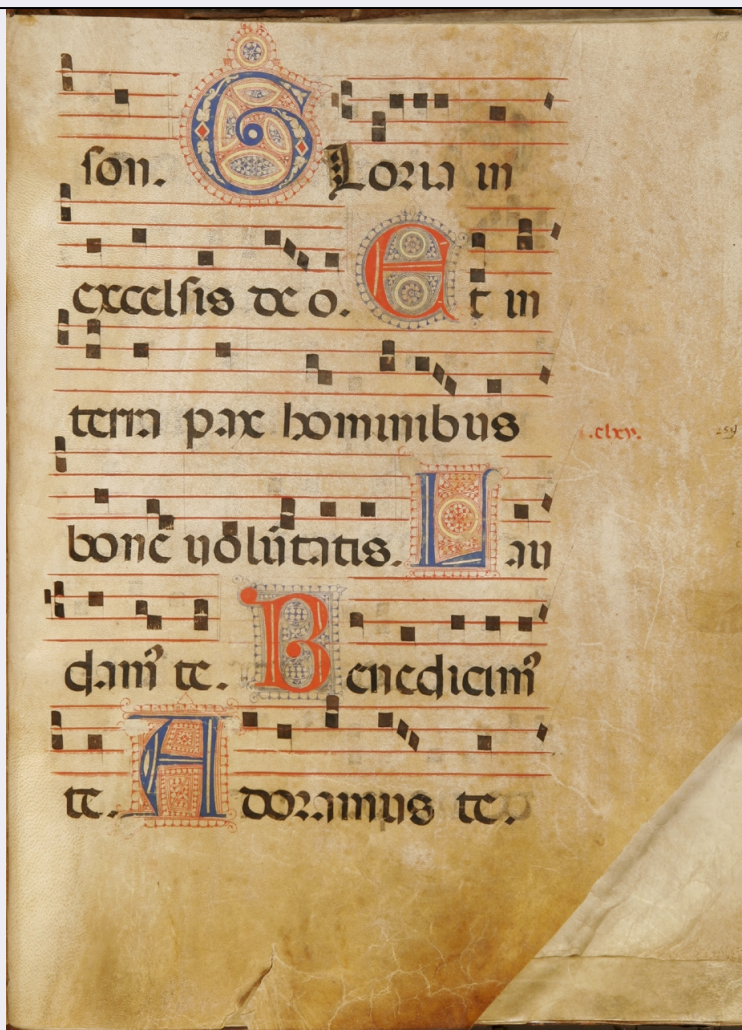 son. Gloria in
excelsis deo. Et in
terra pax hominibus
.clxv.
bone uolūtatis. Lau
dam⁹ te. Benedicim⁹
te. Adoramus te.